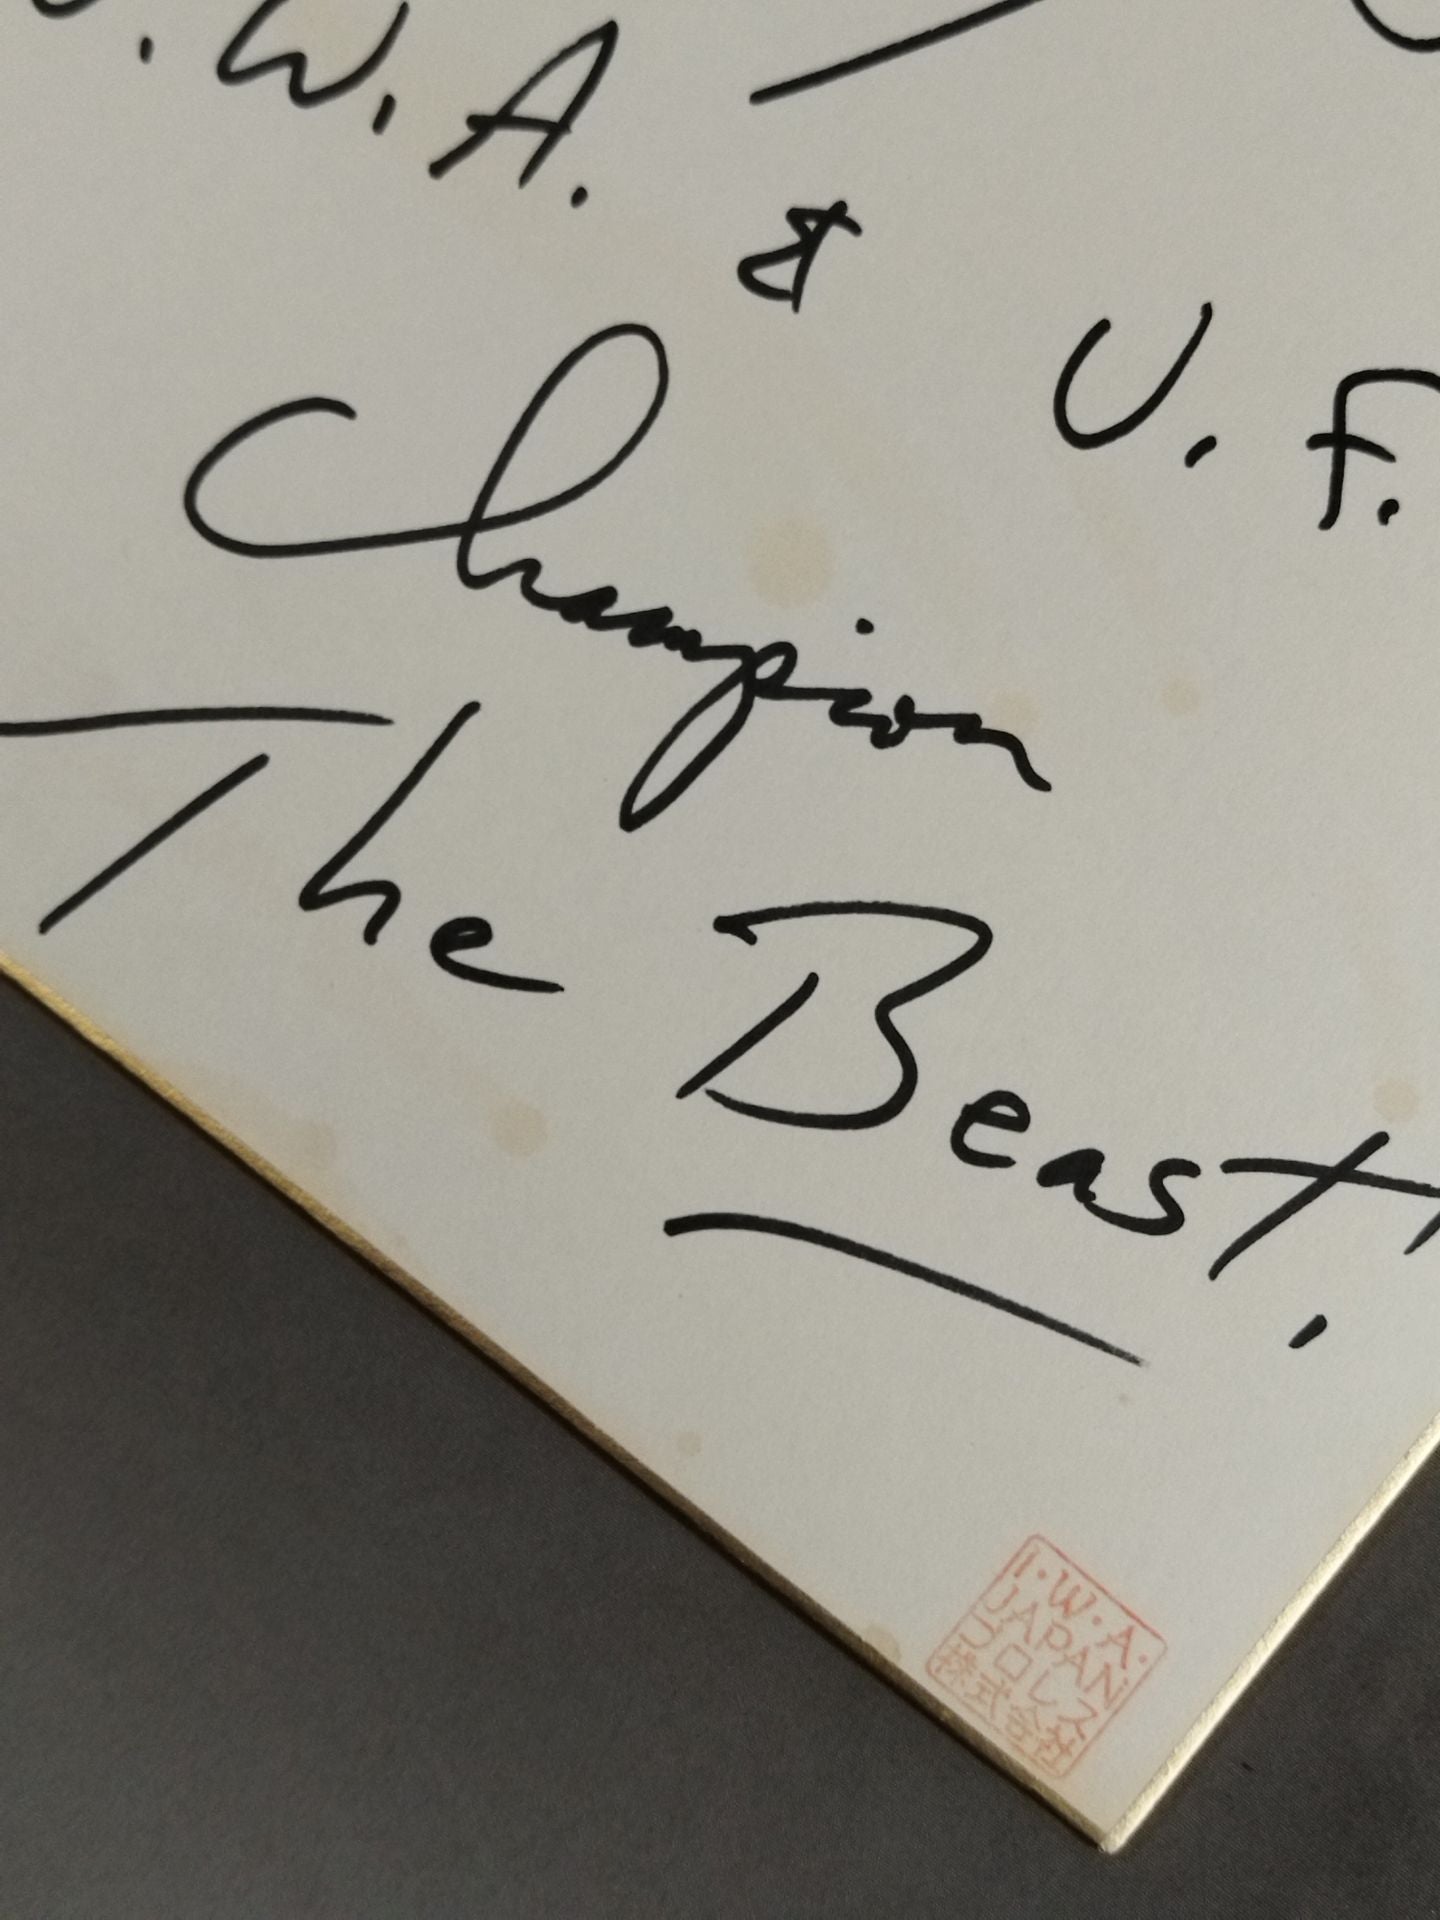 . W. A. & U. F.
Champion
The Beast!
I.W.A.
JAPAN
プロレス
株式会社